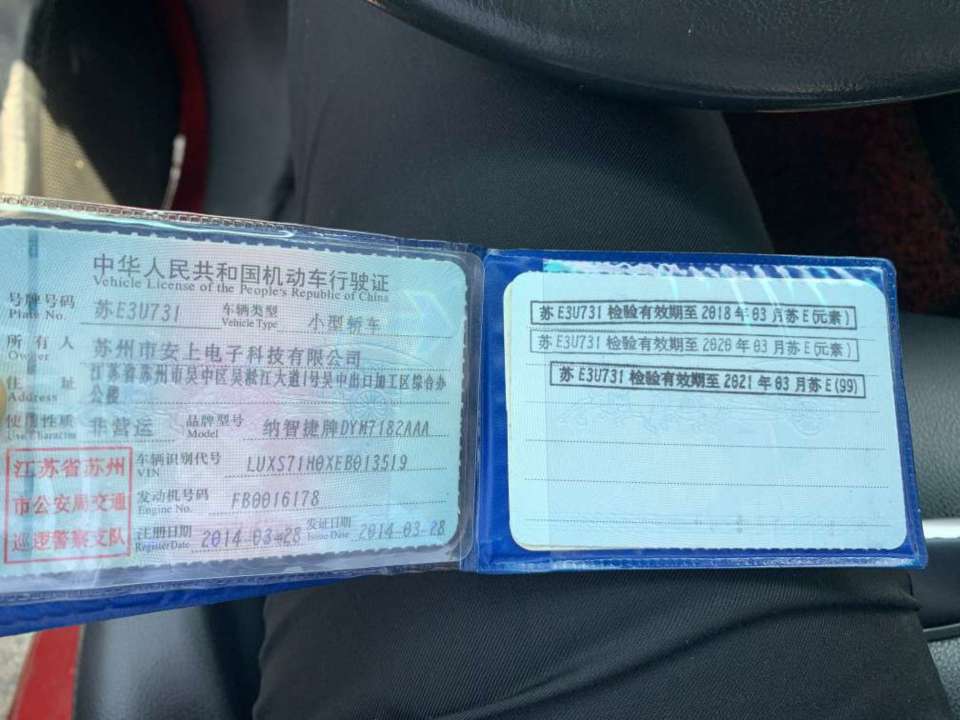 中华人民共和国机动车行驶证
Vehicle License of the People's Republic of China
号牌号码 苏E3U731 车辆类型 小型轿车
Plate No. Vehicle Type
所有人 苏州市安上电子科技有限公司
Owner
住址 江苏省苏州市吴中区吴淞江大道1号吴中出口加工区综合办
Address 公楼
使用性质 非营运 品牌型号 纳智捷牌DYM7182AAA
Use Character Model
江苏省苏州
市公安局交通
巡逻警察支队
车辆识别代号 LUXS71H0XEB013519
VIN
发动机号码 FB0016178
Engine No.
注册日期 2014-03-28 发证日期 2014-03-28
Register Date Issue Date
苏E3U731 检验有效期至2018年03月苏E(元素)
苏E3U731 检验有效期至2020年03月苏E(元素)
苏E3U731 检验有效期至2021年03月苏E(99)